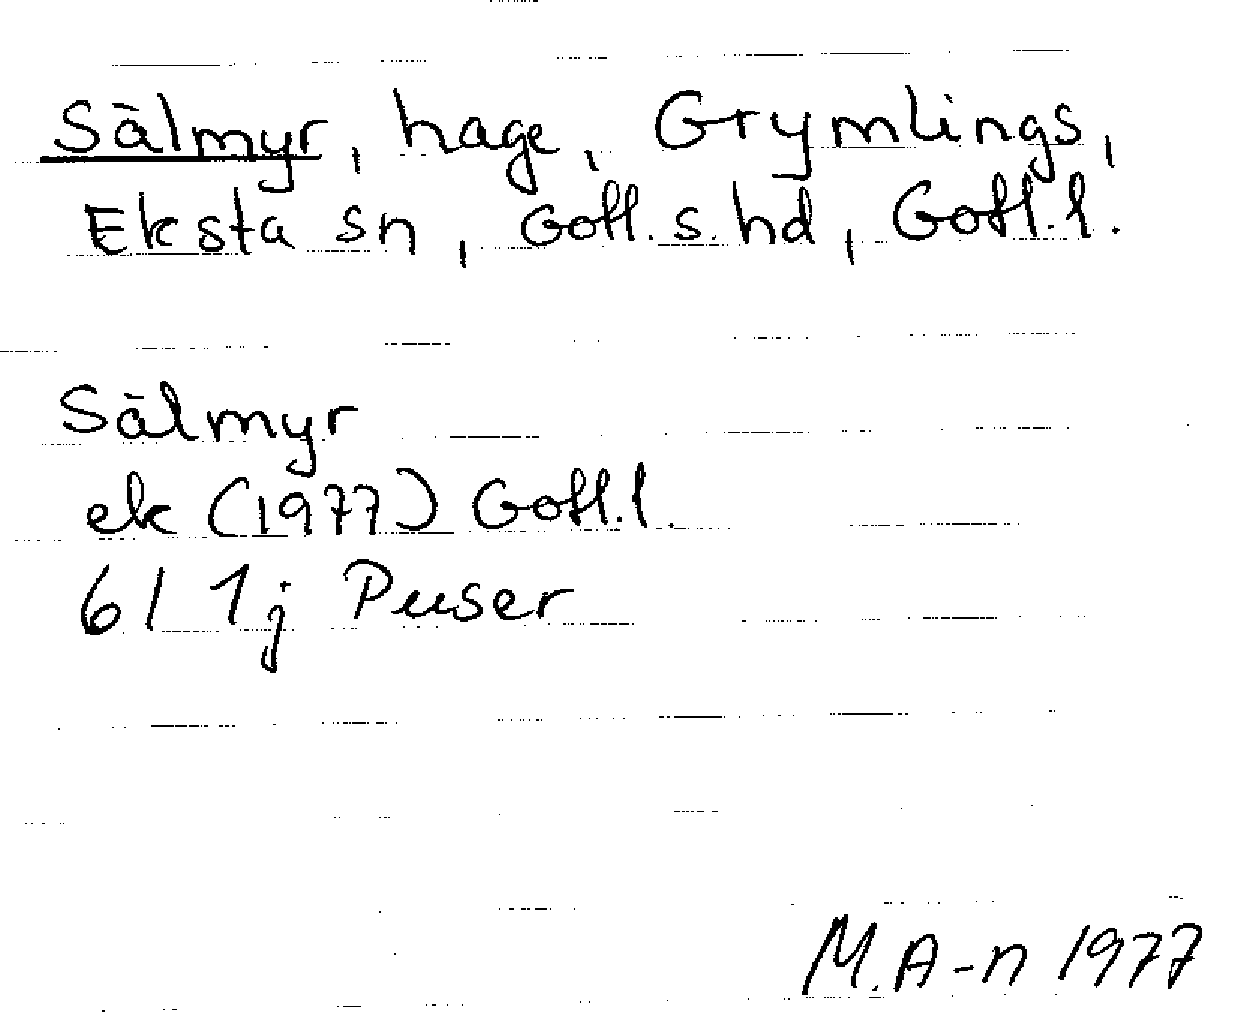 Sälmyr, hage, Grymlings,
Eksta sn, Gotl. s. hd, Gotl. l.
Sälmyr
ek (1977) Gotl. l.
6I 1j Puser
M.A-n 1977